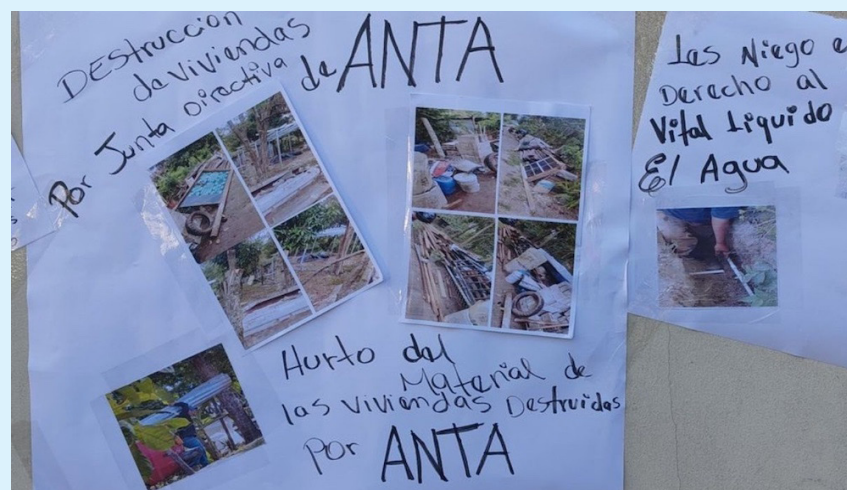 DEStrucción
de Viviendas
Por Junta Directiva de ANTA
Hurto del
Material de
las Viviendas Destruidas
Por ANTA
Les Niego e
Derecho al
Vital Liquido
El Agua